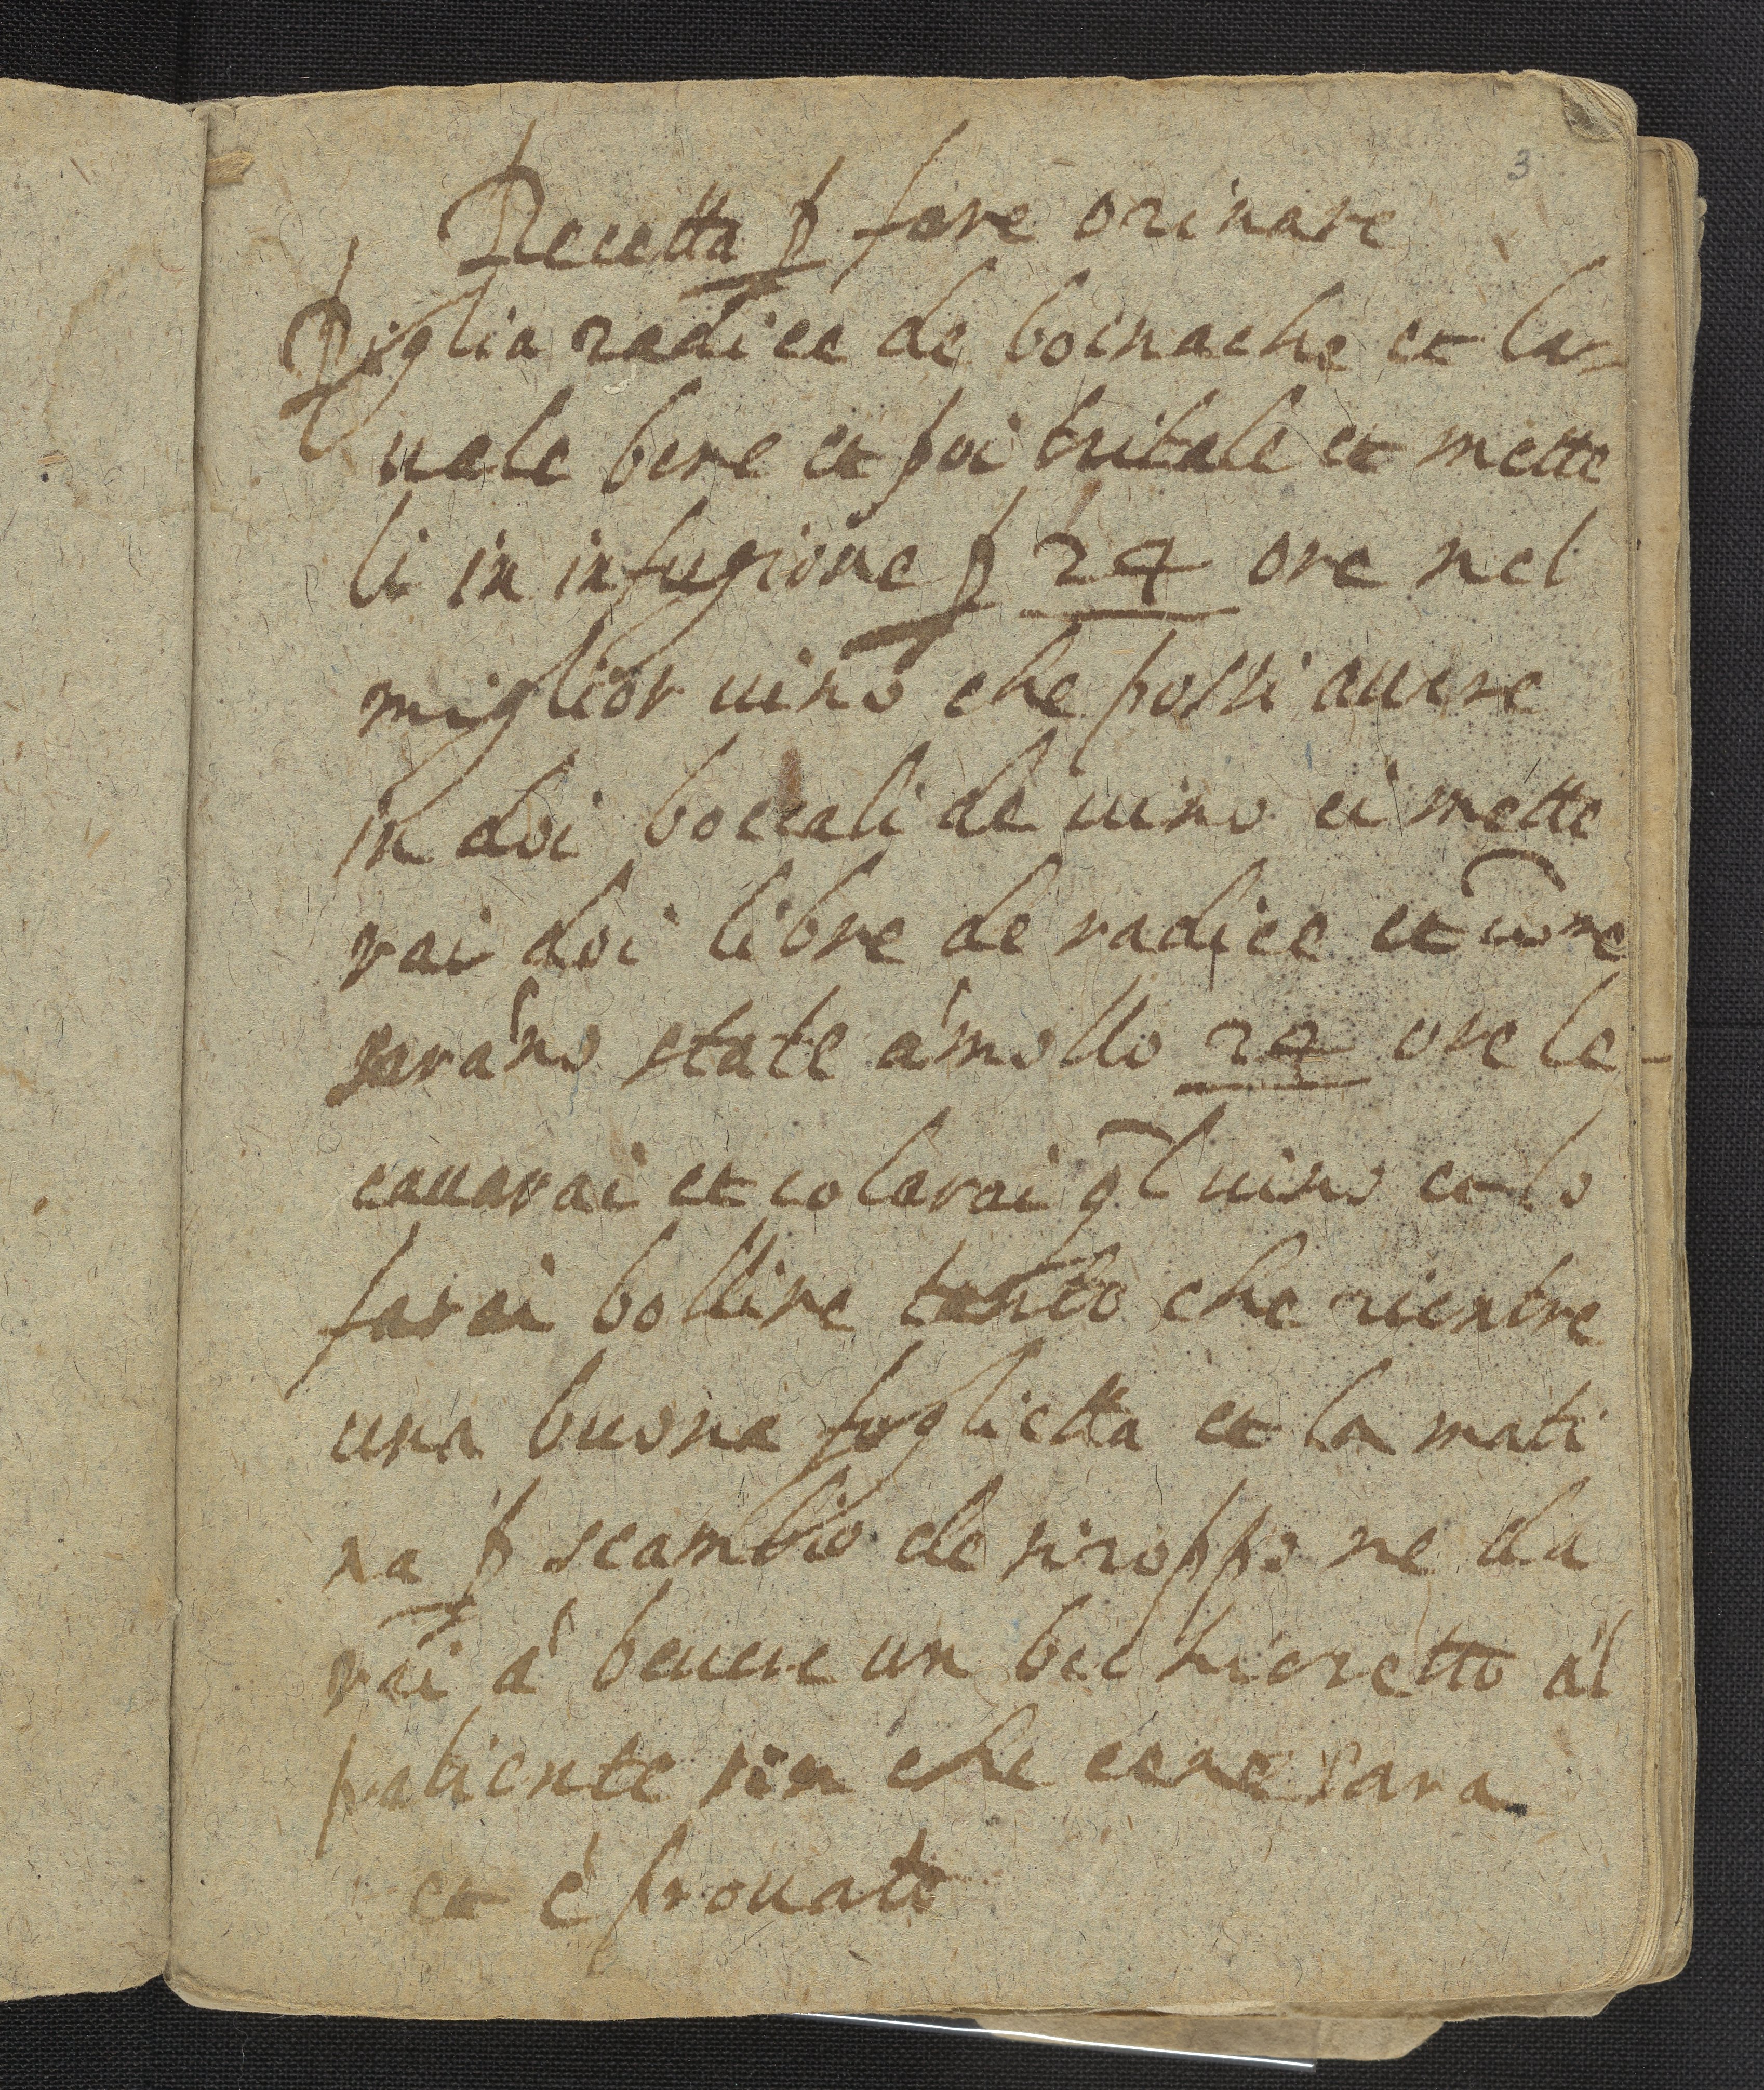 3
Recetta ꝑ fare orinare
Piglia radice de boinache et la=
uale bene et poi tritale et mette
li in infugione ꝑ 24 ore nel
miglior uino che possi auere
in doi boccali de uino ci mette
rai doi libre de radice et com̄e
sarano state á mollo 24 ore le
cauarai et colarai q̄l uino et lo
farai bollire tanto che rientre
una buona foglietta et la mati
na ꝑ scambio de siroppo ne da
rai á beuere un bichieretto al
patiente sin che cene sara
et é prouato